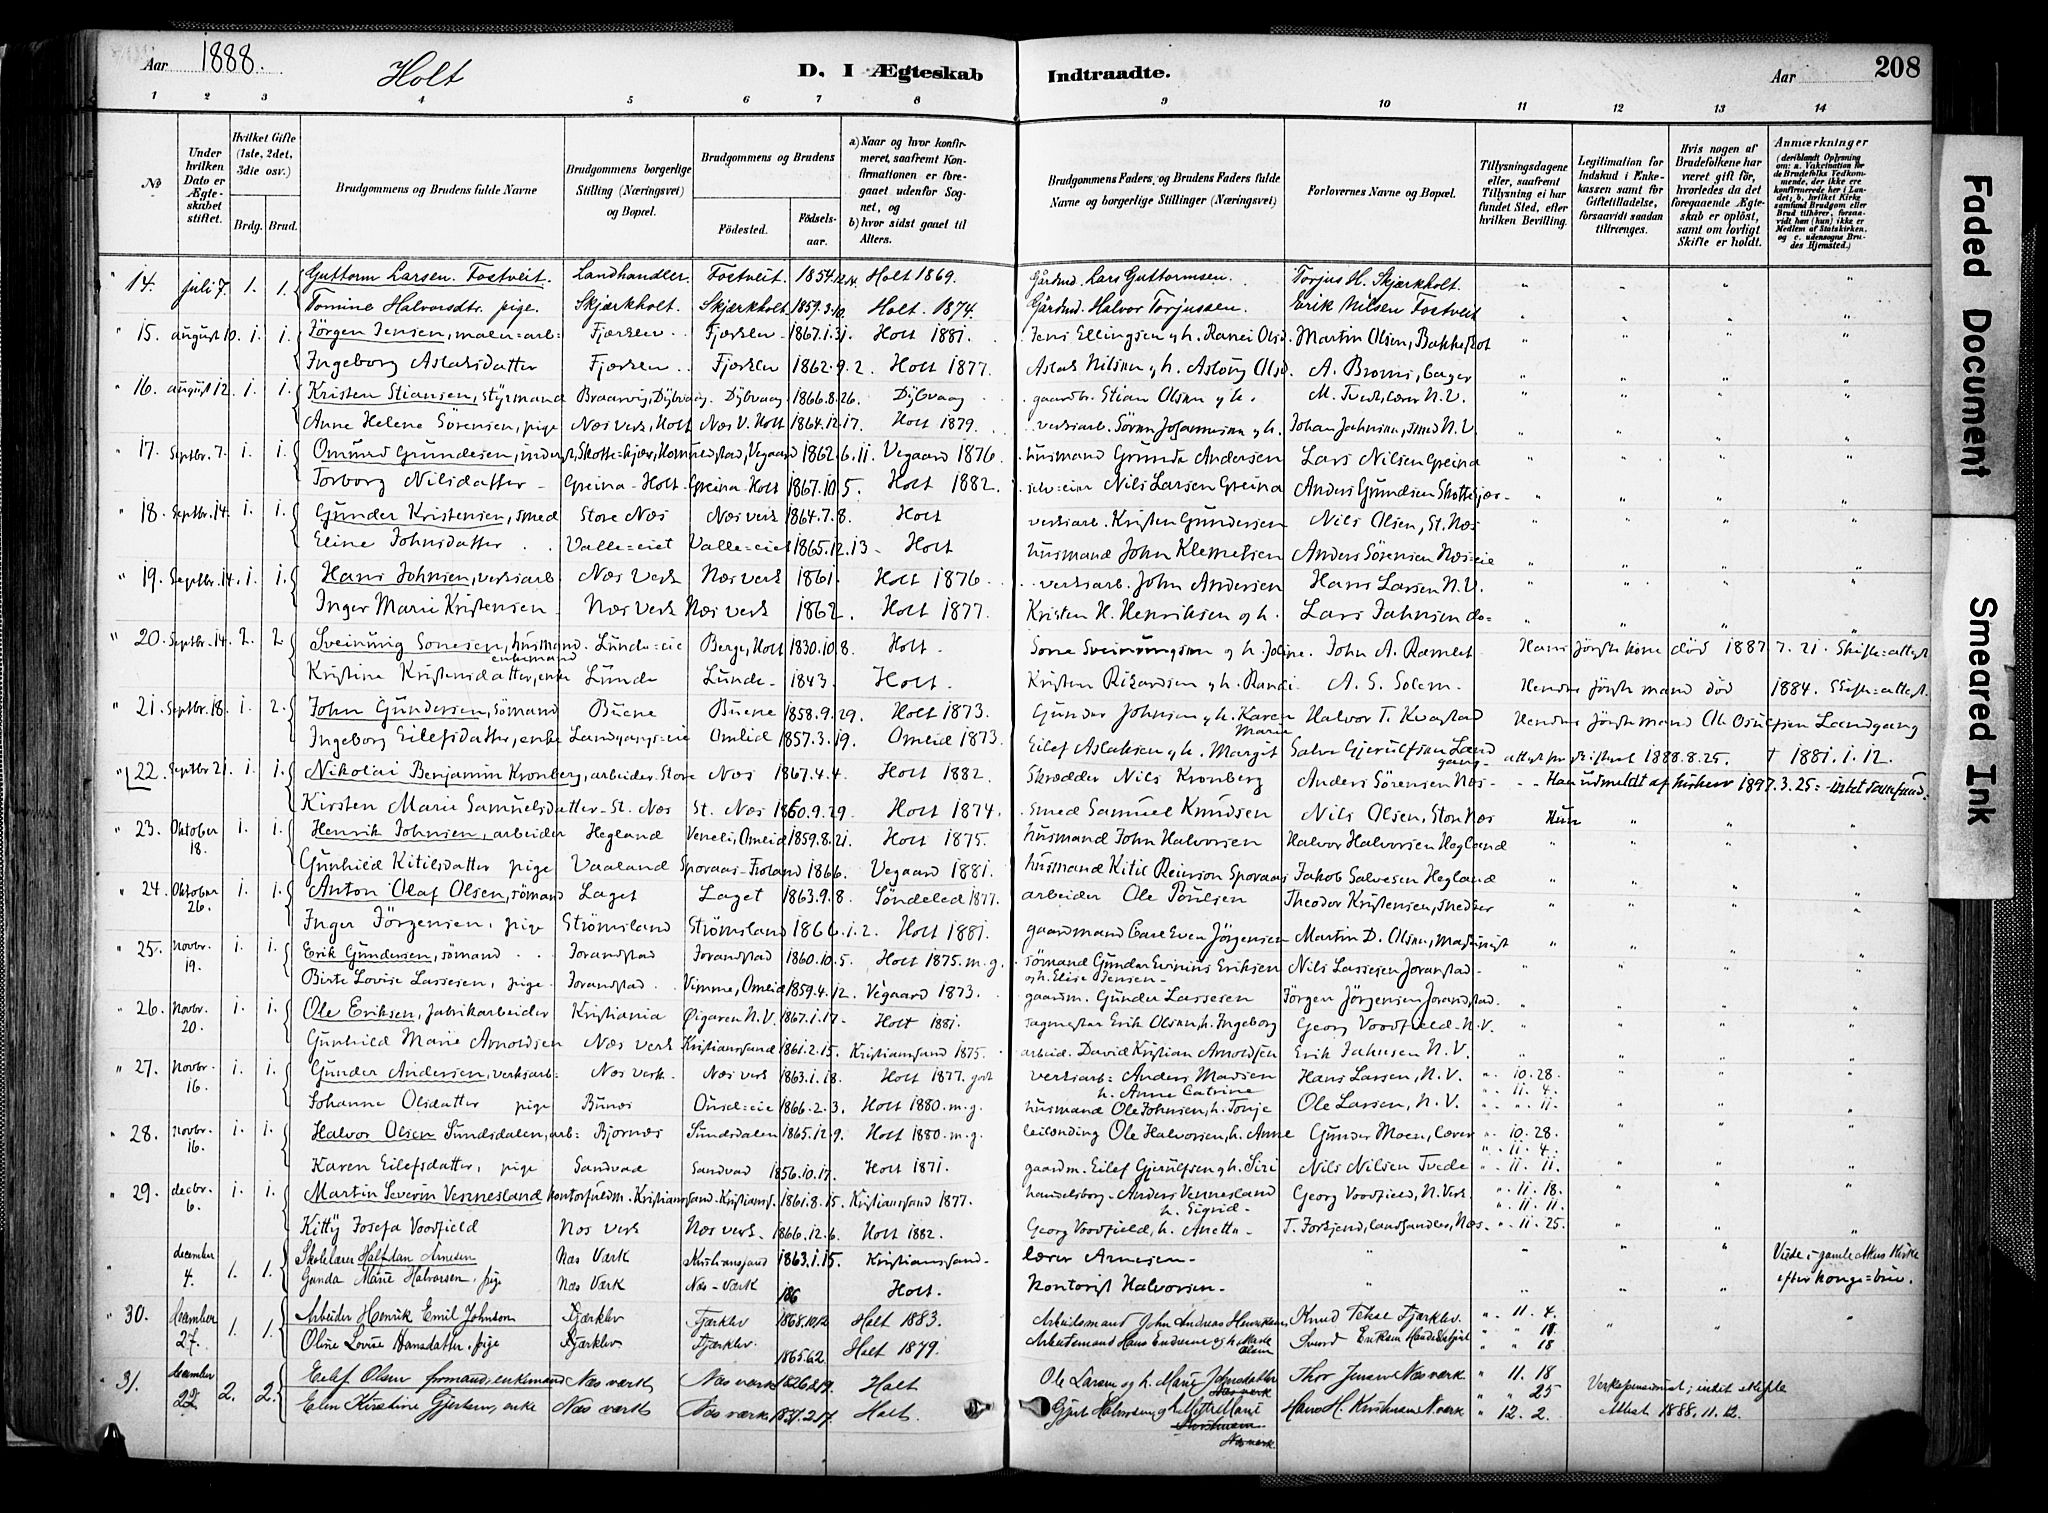 Aar 1888. Holt D. I Ægteskab Indtraadte. Aar 208
1 2 3 4 5 6 7 8 9 10 11 12 13 14
No
Under hvilken Dato er Ægteskabet stiftet.
Hvilket Gifte (1ste, 2det, 3die osv.)
Brdg. Brud.
Brudgommens og Brudens fulde Navne
Brudgommens borgerlige Stilling (Næringsvei) og Bopæl.
Brudgommens og Brudens
Födested. Födselsaar.
a) Naar og hvor konfirmeret, saafremt Konfirmationen er foregaaet udenfor Sognet, og
b) hvor sidst gaaet til Alters.
Brudgommens Faders, og Brudens Faders fulde Navne og borgerlige Stillinger (Næringsvei)
Forlovernes Navne og Bopæl.
Tillysningsdagene eller, saafremt Tillysning ei har fundet Sted, efter hvilken Bevilling.
Legitimation for Indskud i Enkekassen samt for Giftetilladelse, forsaavidt saadan tiltrænges.
Hvis nogen af Brudefolkene har været gift för, hvorledes da det foregaaende Ægteskab er oplöst, samt om lovligt Skifte er holdt.
Anmærkninger (deriblandt Oplysning om: a. Vakcination for de Brudefolks Vedkommende, der ikke ere konfirmerede her i Landet; b. hvilket Kirkesamfund Brudgom eller Brud tilhörer, forsaavidt han (hun) ikke er Medlem af Statskirken, og c. udensogns Brudes Hjemsted.)
14. juli 7. 1. 1. Guttorm Larsen Fostveit. Landhandler. Fostveit. 1854.12.14. Holt 1869. Gårdmd. Lars Guttormsen. Torjus H. Skjærkholt.
Tomine Halvorsdtr. pige. Skjærkholt. Skjærkholt. 1859.3.10. Holt. 1874. Gårdmd. Halvor Torjussen. Erik Nilsen Fostveit
15. august 10. 1. 1. Jörgen Jensen, maler=arb= Fjærlen Fjærlen 1867.1.31. Holt 1881. Jens Ellingsen og h. Martin Olsen, Bakke, Holt
Ingeborg Aslaksdatter Fjærlen Fjærlen 1862.9.2. Holt 1877. Aslak Nilsen og h. Aslaug Olsd.
16. august 12. 1. 1. Kristen Stiansen, styrmand Braarvig, Dybvaag. Dybvaag 1866.8.26. Dybvaag gaardbr. Stian Olsen og h. M. Tvedt, lærer N.V.
Anne Helene Sörensen, pige Næs verk, Holt Næs V. Holt 1864.12.17. Holt 1879. verksarb. Sören Johannesen og h. Johan Jahnsen, smed N.V.
17. Septbr. 7. 1. 1. Omund Gundersen, 1862.6.11. Vegaard 1876. husmand Gunder Andersen Lars Nilsen Greina
Torborg Nilsdatter Greina-Holt Greina-Holt 1867.10.5. Holt 1882. selv=eier Nils Larsen Greina Anders Gundersen
18. Septbr. 14. 1. 1. Gunder Kristensen, smed Store Næs Næs verk 1864.7.8. Holt verksarb. Kristen Gundersen Nils Olsen, St. Næs
Eline Johnsdatter Valle=eiet Valle=eiet 1865.12.13. Holt husmand John Klemetsen Anders Sörensen Næs=eie
19. Septbr. 14. 1. 1. Hans Johnsen, verksarb Næs Verk Næs verk 1861. Holt 1876. verksarb. John Andersen Hans Larsen N.V.
Inger Marie Kristensen Næs verk Næs verk 1862. Holt 1877. Kristen H. Henriksen og h. Lars Jahnsen do=
20. Septbr. 14. 2. 2. Sveinung Sonesen, husmand, enkemand Lunde=eie Berge, Holt 1830.10.8. Holt. Sone Sveinungsen og h. John A. Ramlet Hans förste kone död 1887.7.21. Skifte=attest
Kristine Kristensdatter, enke Lunde Lunde 1843. Holt. Kristen Rikardsen og h. Randi A. S. Solem. Hendes förste mand död 1884. Skifte=attest.
21. Septbr. 18. 1. 2. John Gundersen, sömand Buene Buene 1858.9.29. Holt 1873. Gunder Johnsen og h. Karen Marie Halvor T. Kvastad Hendes förste mand Ole Osulfsen Landgang
Ingeborg Eilefsdatter, enke Landgangs=eie Omlid 1857.3.19. Omlid 1873. Eilef Aslaksen og h. Margit 1888.8.25. † 1881.1.12.
22. Septbr 21. 1. 1. Nikolai Benjamin Kronberg, arbeider Store Næs 1867.4.4. Holt 1882. Skrædder Nils Kronberg Anders Sörensen Næs Han udmeldt af kirken 1897.3.25= intet samfund.
Kirsten Marie Samuelsdatter St. Næs St. Næs 1860.9.29. Holt 1874. smed Samuel Knudsen Nils Olsen, Store Næs Hun
23. Oktober 18. 1. 1. Henrik Johnsen, arbeider Hegland Veneli, Omlid 1859.8.21. Holt 1875. husmand John Halvorsen Halvor Halvorsen Hegland
Gunhild Kitilsdatter pige Vaaland Sporaas-Froland 1866. Vegaard 1881. husmand Kitil Reierson Sporaas Jakob Salvesen Hegland
24. Oktober 26. 1. 1. Anton Olaf Olsen, sömand Laget Laget 1863.9.8. Söndeled 1877. arbeider Ole Poulsen Theodor Kristensen,
Inger Jörgensen, pige Strömsland Strömsland 1866.1.2. Holt 1881. gaardmand Carl Even Jörgensen Martin D. Olsen, maskinist
25. Novbr. 19. 1. 1. Erik Gundersen, sömand Jorandstad Jorandstad 1860.10.5. Holt 1875. m.g. sömand Gunder Evinius Eriksen og h. Elise Jensen Nils Lassesen Jorandstad
Birte Lovise Lassesen, pige Jorandstad. Vimme, Omlid 1859.4.12. Vegaard 1873. gaardm. Gunder Lassesen Jörgen Jörgensen Jorandstad.
26. Novbr. 20. 1. 1. Ole Eriksen, fabrikarbeider Kristiania Öigaren N.V. 1867.1.17. Holt 1881. sagmester Erik Olsen h. Ingeborg Georg Voodfield N.V.
Gunhild Marie Arnoldsen Næs verk Kristiansand 1861.2.15. Kristiansand 1875. arbeid. David Kristian Arnoldsen Erik Jahnsen N.V.
27. Novbr. 16. 1. 1. Gunder Andersen, verksarb= Næs verk. Næs verk 1863.1.18. Holt 1877. godt verksarb= Anders Madsen h. Anne Catrine Hans Larsen, N.V. 10.28. 11.4.
Johanne Olsdatter pige Bunes Ousd=eie 1866.2.3. Holt 1880. m.g. husmand Ole Johnsen, h. Tonje Ole Larsen, N.V. 11.
28. Novbr. 16. 1. 1. Halvor Olsen Sundsdalen, arb= Bjornæs Sundsdalen 1865.12.9. Holt 1880. m.g. leilænding Ole Halvorsen, h. Anne Gunder Moen, lærer 10.28. 11.4.
Karen Eilefsdatter, pige Sandvad Sandvad 1856.10.17. Holt 1871. gaardm. Eilef Gjerulfsen og h. Siri Nils Nilsen Tvede 11.11.
29. decbr. 6. 1. 1. Martin Severin Vennesland kontorfuldm. Kristiansand Kristians. 1861.8.15. Kristiansand 1877. handelsborg. Anders Vennesland h. Sigrid Georg Voodfield, N. Verk. 11.18. 11.11.
Kitty Josefa Voodfield Næs verk Næs verk. 1866.12.6. Holt 1882. Georg Voodfield, h. Anetta T. Forkjend, landhandler, Næs. 11.25.
december 4. 1. 1. Skolelærer Halfdan Arnesen Næs Værk Kristiansand 1863.1.15. Kristiansand. lærer Arnesen Viede i gamle Akers Kirke
Gunda Marie Halvorsen, pige Næs Værk Næs Værk 186 Holt. Kontorist Halvorsen efter konge=brev.
30. december 27. 1. 1. Arbeider Henrik Emil Johnsen Fjærkler Fjærkler 1868.10.12 Holt 1883. Arbeidsmand John Andreas Henriksen Knud Fjærklev. 11.4. 11.
Oline Lovise Hansdatter, pige Fjærklev Fjærklev. 1865.6.2. Holt 1879. Arbeidsmand Hans Endresen og h. Marte Olsen Sivert Eriksen 18
31. december 22 2. 2. Eilef Olsen formand, enkemand Næs værk Næs værk 1826.2.19. Holt Ole Larsen og h. Marie Johnsdatter Næs værk Thor Jensen Næs værk 11.18 25 Verkspensionist; intet skifte
Elen Kirstine Gjertsen, enke Næs værk Næs værk 1831.2.17. Holt. Gjert Halvorsen og Mette Marie Næs værk Hans H. Kristensen N. værk 12.2. Attest 1888.11.12.
Faded Document
Smeared Ink